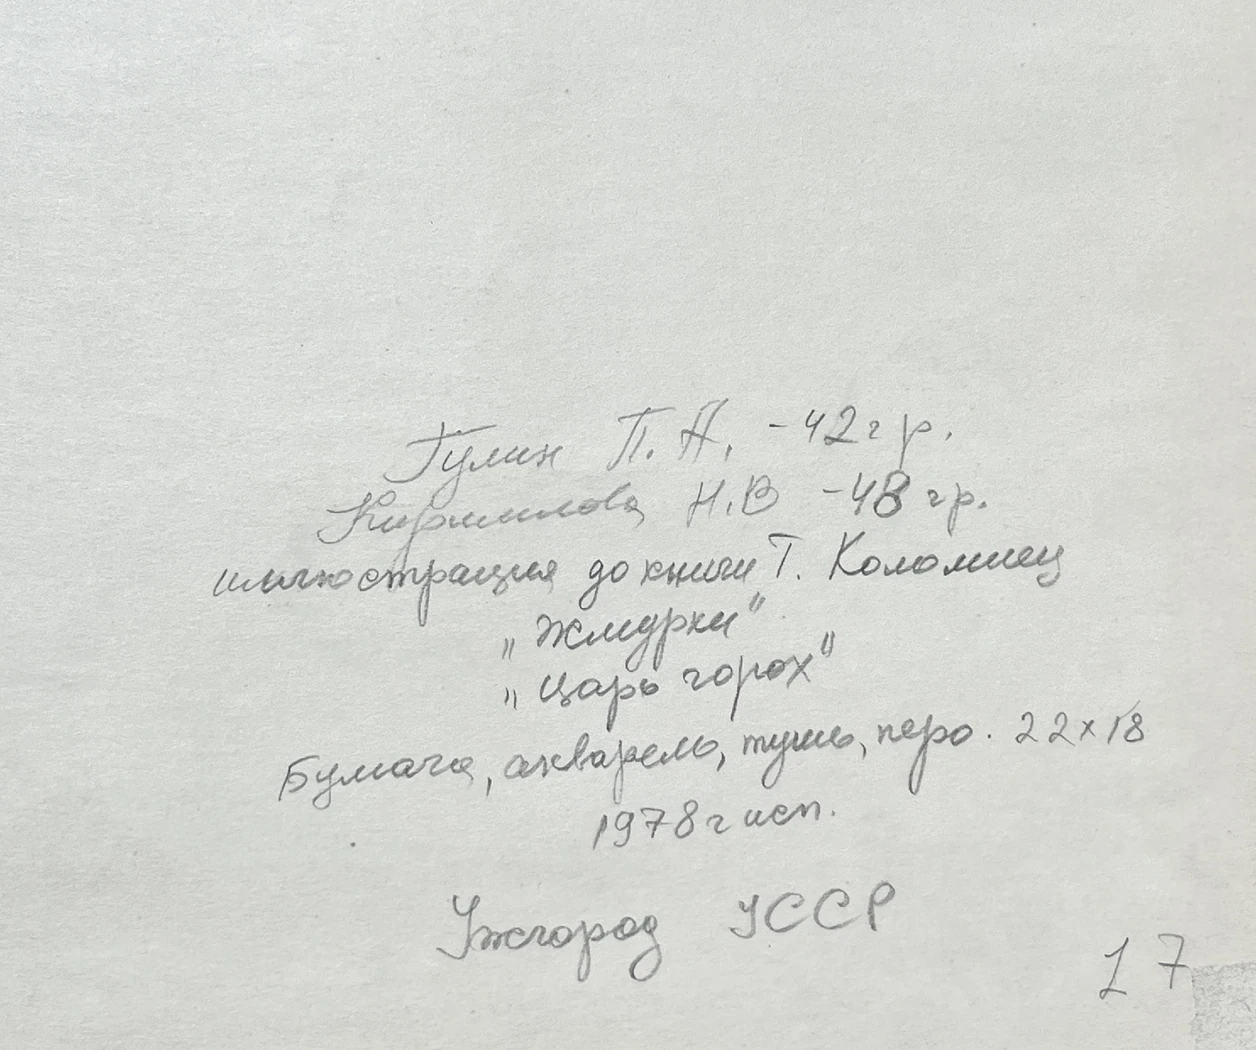 Гулин П. А. - 42 г р.
Кириллова Н.В - 48 гр.
иллюстрация до книги Т. Коломиец
„Жмурки"
„Царь горох"
Бумага, акварель, тушь, перо. 22х18
1978 г исп.
Ужгород УССР
17